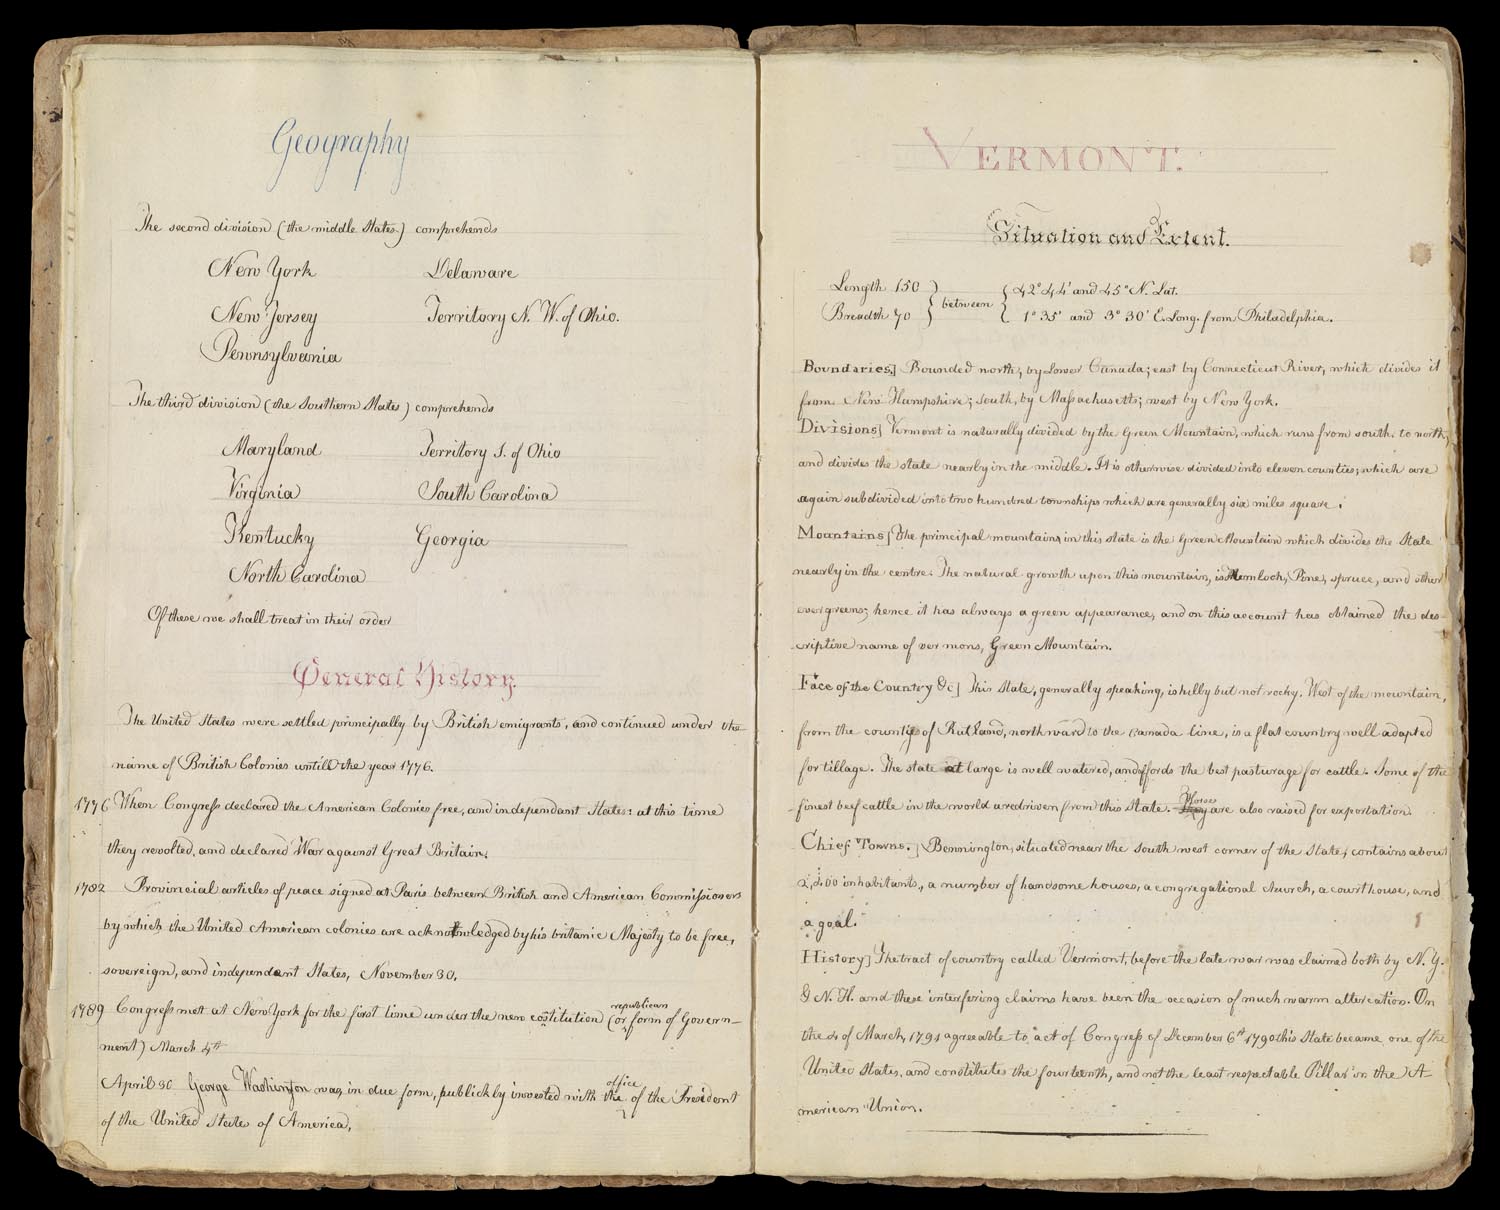 Geography
The second division (the middle States) comprehends
New York Delaware
New Jersey Territory N. W. of Ohio.
Pennsylvania
The third division (the Southern States) comprehends
Maryland Territory S. of Ohio
Virginia South Carolina
Kentucky Georgia
North Carolina
Of these we shall treat in their order
General History.
The United States were settled principally by British emigrants, and continued under the
name of British Colonies untill the year 1776.
1776 When Congress declared the American Colonies free, and independant States: at this time
they revolted, and declared War against Great Britain.
1782 Provincial articles of peace signed at Paris between British and American Commissioners
by which the United American colonies are acknowledged by his britanic Majesty to be free,
sovereign, and independent States, November 30.
republican
1789 Congress met at New York for the first time under the new costitution (or form of Govern-
ment) March 4th
office
April 30 George Washington was, in due form, publickly invested with the of the President
of the United State of America,
VERMONT.
Situation and Extent.
Length 150 } between { 42° 44' and 45° N. Lat.
Breadth 70 1° 35' and 3° 30' E. Long. from Philadelphia.
Boundaries.] Bounded north, by Lower Canada; east by Connecticut River, which divides it
from New Hampshire; south, by Massachusetts; west by New York.
Divisions] Vermont is naturally divided by the Green Mountain, which runs from south to north,
and divides the state nearly in the middle. It is otherwise divided into eleven counties; which are
again subdivided into two hundred townships which are generally six miles square.
Mountains] The principal mountains in this state is the Green Mountain which divides the State
nearly in the centre. The natural growth upon this mountain, is Hemlock, Pine, spruce, and other
evergreens; hence it has always a green appearance, and on this account has obtained the des-
criptive name of ver mons, Green Mountain.
Face of the Country &c] This State, generally speaking, is hilly but not rocky. West of the mountain,
from the county of Rutland, northward to the Canada line, is a flat country well adapted
for tillage. The state at large is well watered, and affords the best pasturage for cattle. Some of the
Horses
finest beef cattle in the world are driven from this State. They are also raised for exportation.
Chief Towns.] Bennington, situated near the South west corner of the State, contains about
2,400 inhabitants, a number of handsome houses, a congregational church, a court house, and
a goal.
History] The tract of country called Vermont, before the late war was claimed both by N. Y.
& N. H. and these interfering claims have been the occasion of much warm altercation. On
the 4 of March, 1791 agreeable to act of Congress of December 6th 1790 this State became one of the
United States, and constitutes the fourteenth, and not the least respectable Pillar in the A-
merican Union.